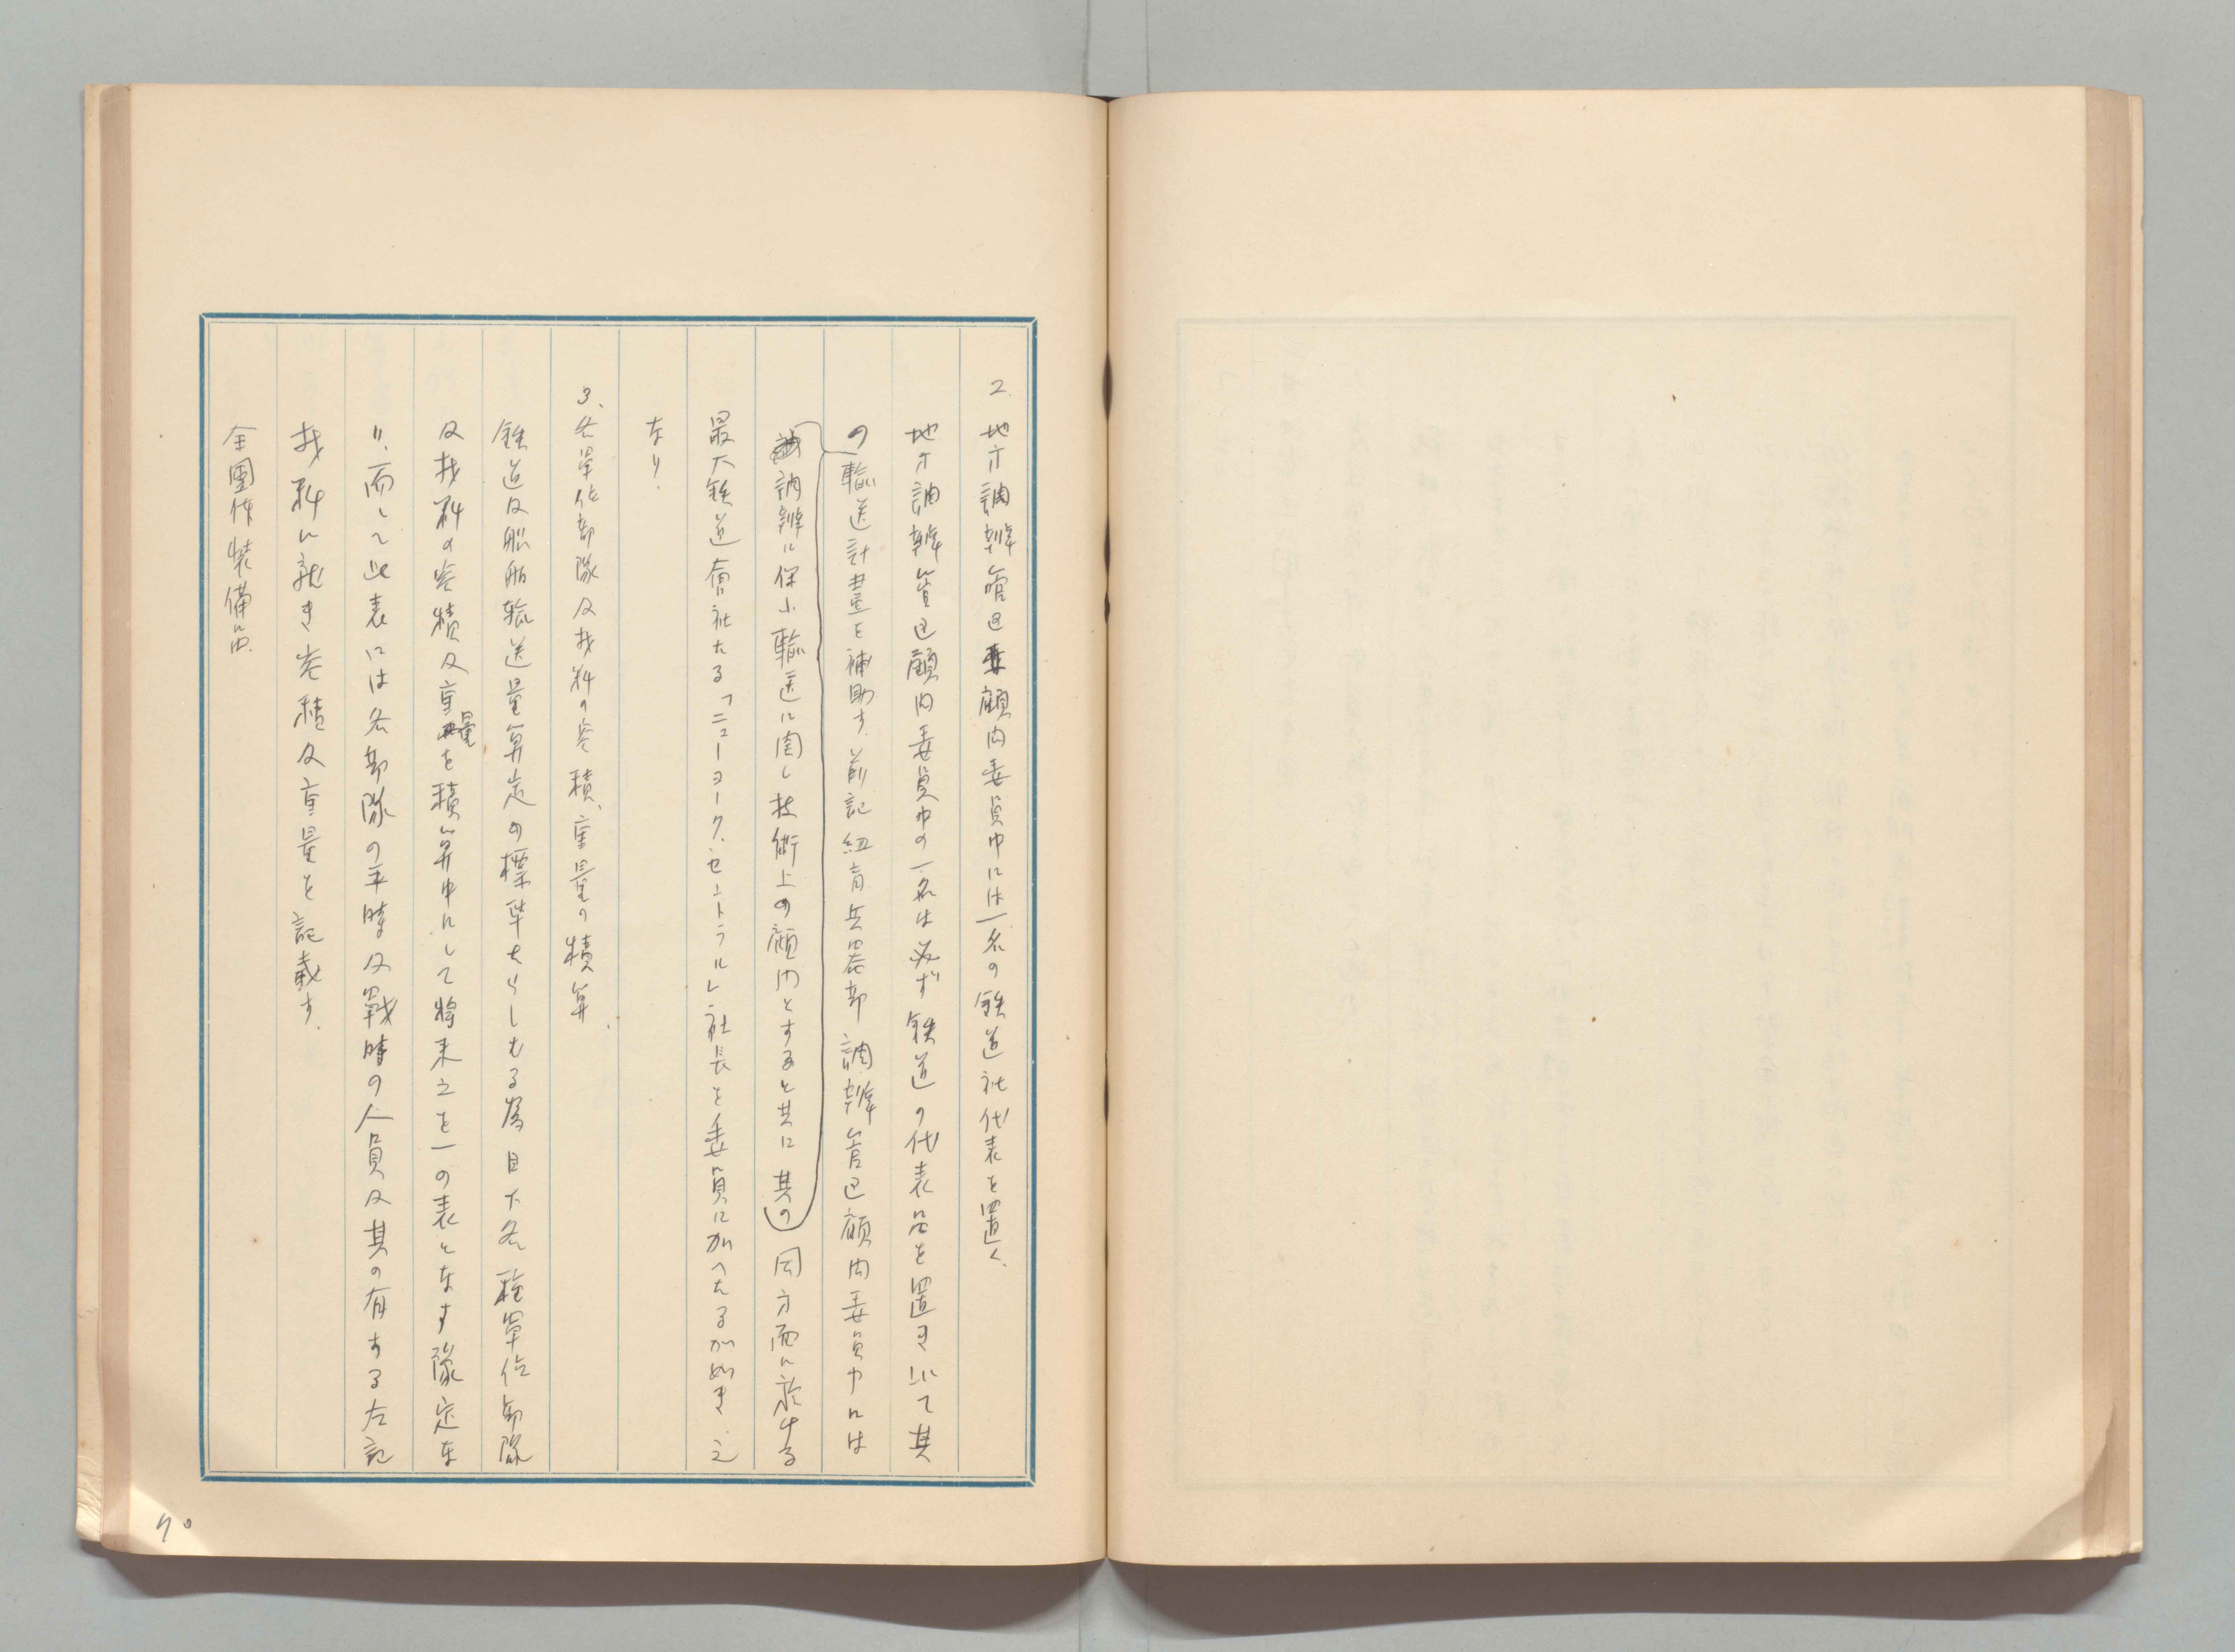 2. 地方調辨管区顧問委員中には一名の鉄道社代表を置く.
地方調辨管区顧問委員中の一名は必ず鉄道の代表者を置き以て其
の輸送計畫を補助す. 前記紐育兵器部調辨管区顧問委員中には
調辨に保小輸送に関し技術上の顧問とすると共に其の同方面に於ける
最大鉄道會社たる「ニューヨーク.セントラル」社長を委員に加へたるが如き之
なり.
3、各單位部隊及材料の容積、重量の積算.
鉄道及船舶輸送量算定の標準たらしむる為目下各種單位部隊
及材料の容積及重量を積算中にして将来之を一の表となす豫定な
り、而して此表には各部隊の平時及戰時の人員及其の有する左記
材料に就き容積及重量を記載す.
全團体装備品.
70